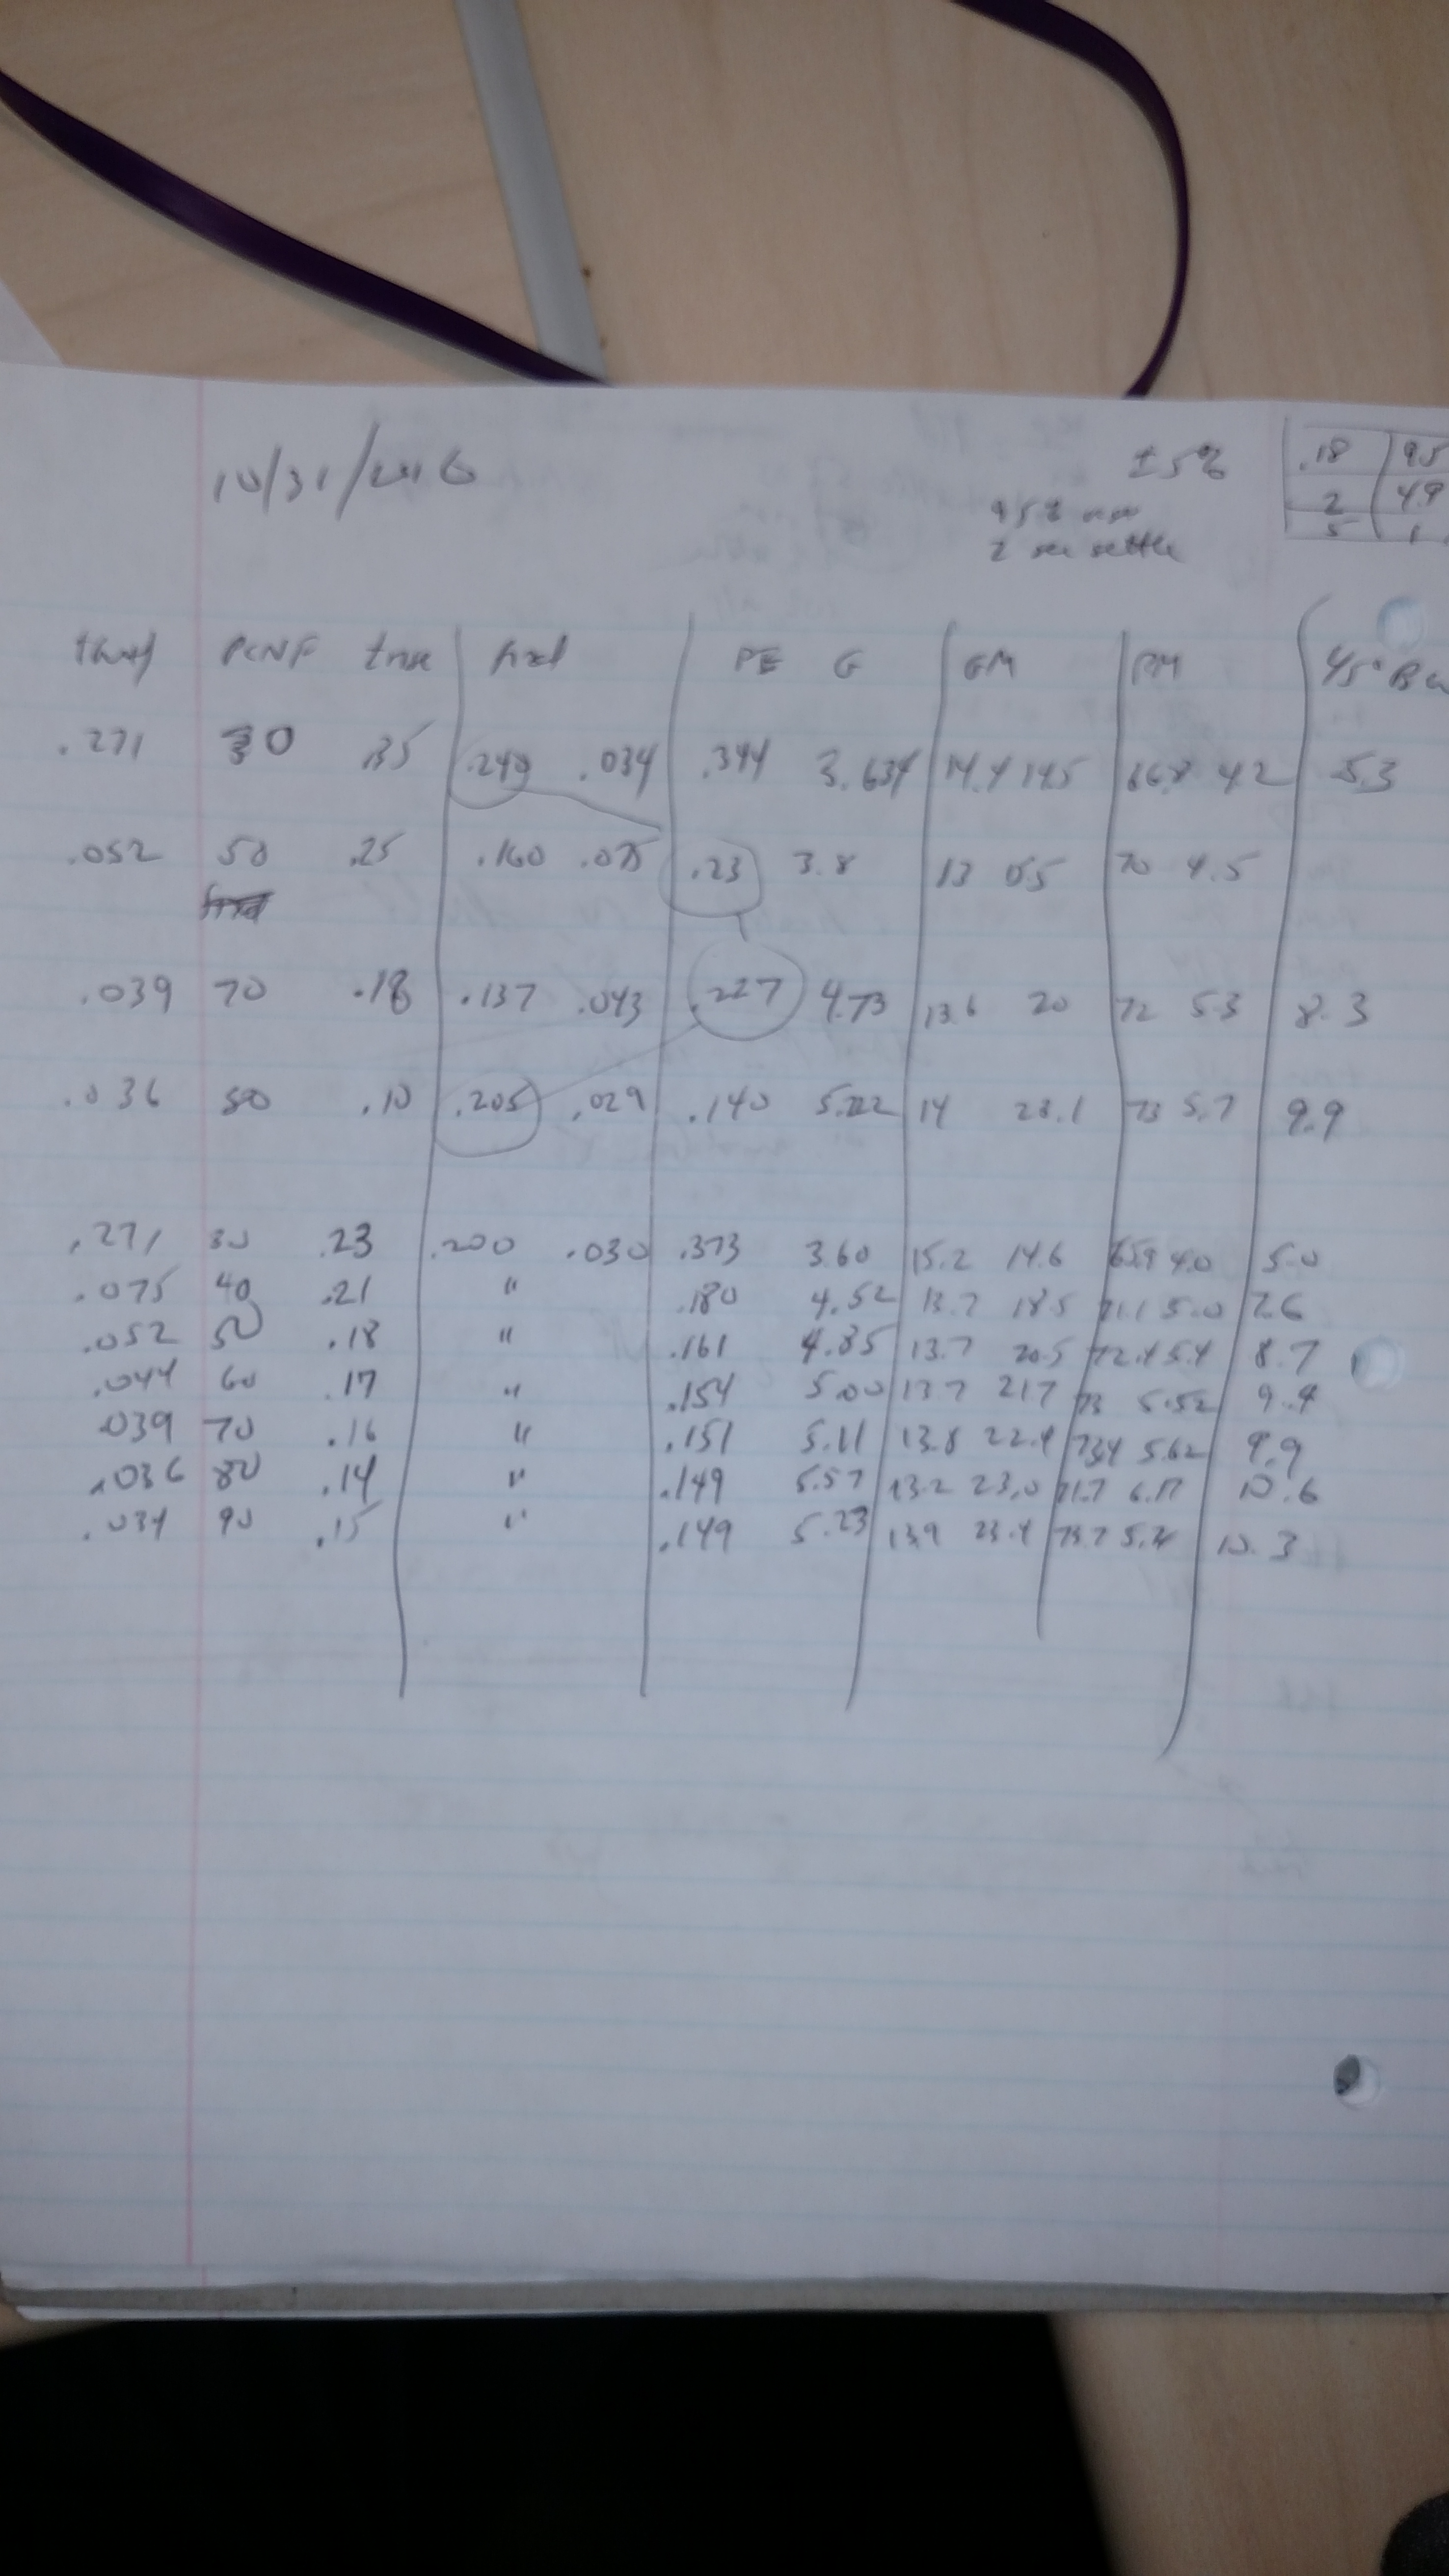 10/31/2016
±5%
.18 95
95% 
2 4.9
2 sec settle
5 1.
PCNF trise PE G GM PM 45° BW
.271 30 .35 .249 .034 .344 3.634 14.4 14.5 66.8 4.2 5.3
.052 50 .25 .160 .23 3.8 13 15.5 70 4.5
.039 70 .18 .137 .043 .227 4.73 13.6 20 72 5.3 8.3
.036 80 .10 .205 .029 .140 14 23.1 73 5.7 9.9
.271 30 .23 .200 .030 .373 3.60 15.2 14.6 65.9 4.0 5.0
.075 40 .21 " .180 4.52 13.7 18.5 71.1 5.0 7.6
.052 50 .18 " .161 4.85 13.7 20.5 72.4 5.4 8.7
.044 60 .17 " .154 5.00 13.7 21.7 73 5.52 9.4
.039 70 .16 " .151 5.11 13.8 22.4 73.4 5.62 9.9
.036 80 .14 " .149 5.57 13.2 23.0 71.7 6.17 10.6
.034 90 .15 " .149 5.23 13.9 23.4 73.7 10.3